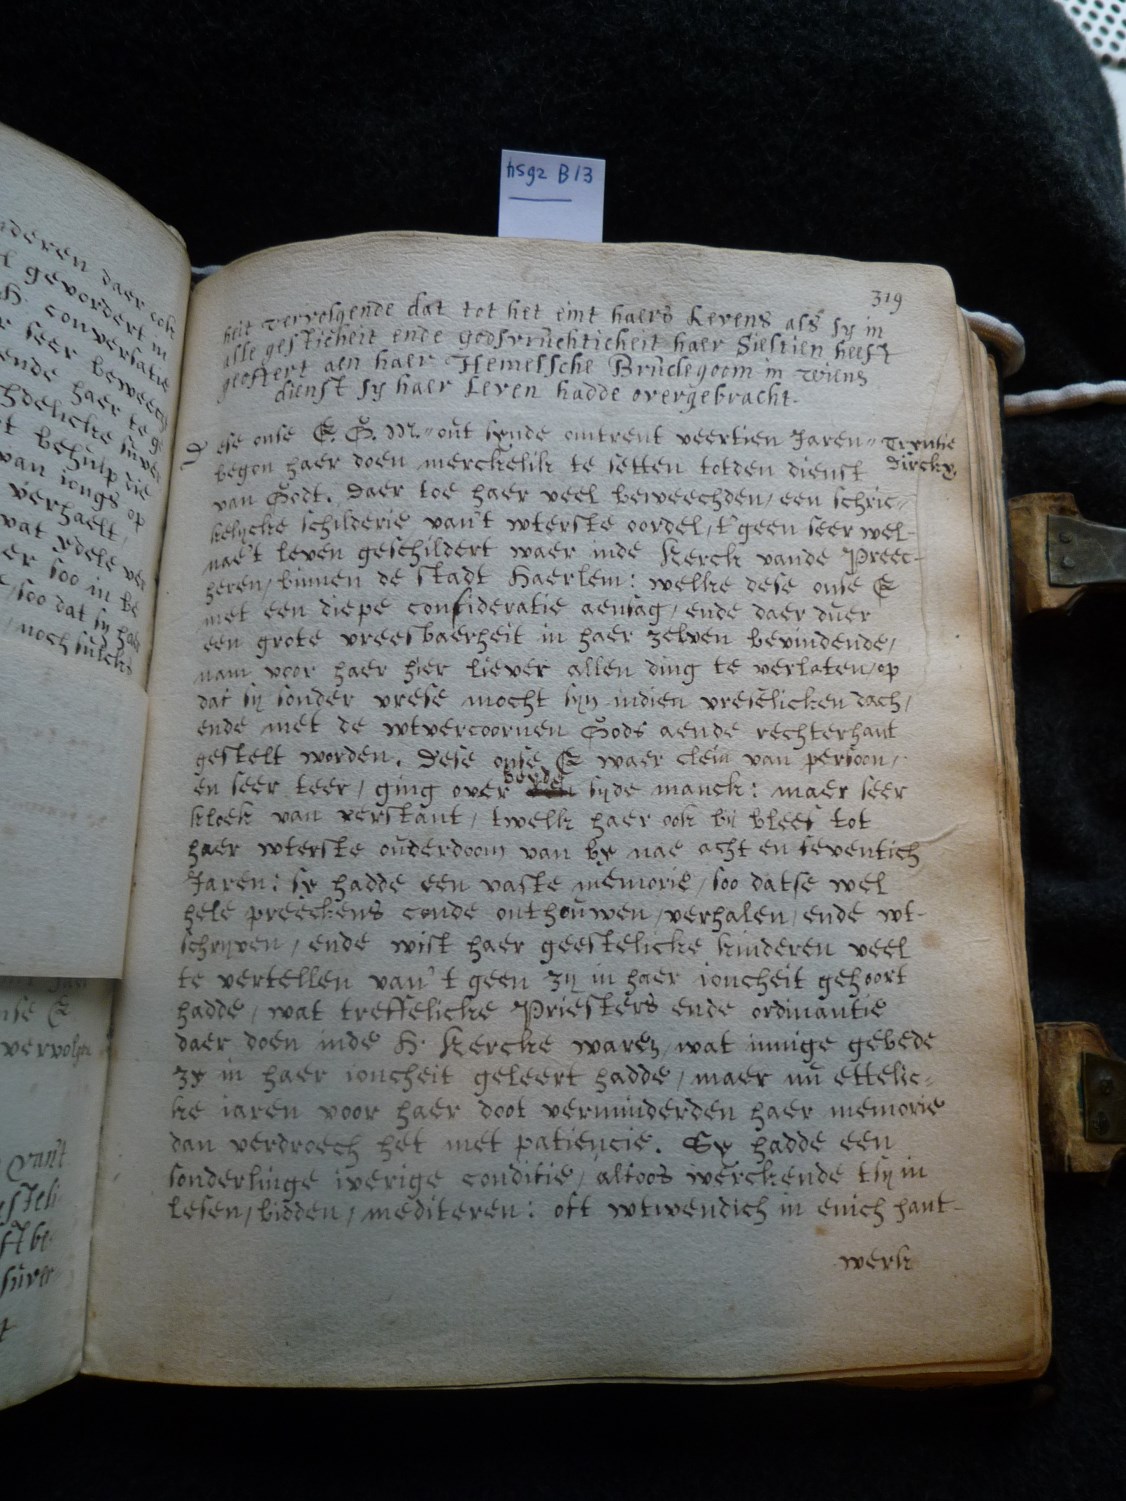 hsg2 B13
319
heit vervolgende dat tot het eint haers Levens als sy in
alle gesticheit ende godsvruchticheit haer Sieltien heeft
geoffert aen haer Hemelsche Brudegoom in wiens
dienst sy haer Leven hadde overgebracht.
Dese onse E. G. M. out synde omtrent veertien Jaren
Tryntie
begon haer doen merckelik te setten totden dienst
dircks,
van Godt. daer toe haer veel beweechden, een schric-
kelycke schilderie van't wterste oordel, t'geen seer wel
nae't leven geschildert waer inde Kerck vande Preec-
heren, binnen de stadt Haerlem: welke dese onse E
met een diepe consideratie aensag, ende daer duer
een grote vreesbaerheit in haer zelven bevindende,
nam voor haer hier liever allen ding te verlaten, op
dat sy sonder vrese mocht syn indien vreselicken dach,
ende met de wtvercoornen Gods aende rechterhant
gestelt worden. Dese onse E waer clein van persoon,
en seer teer, ging over beyde syde manck: maer seer
kloek van verstant, twelk haer ook by bleef tot
haer wterste ouderdoom van by nae acht en seventich
Jaren: sy hadde een vaste memorie, soo datse wel
hele preeckens conde onthouwen, verhalen, ende wt-
schryven, ende wist haer geestelicke kinderen veel
te vertellen van't geen zy in haer ioncheit gehoort
hadde, wat treffelicke Priesters ende ordinantie
daer doen inde H. Kercke waren, wat innige gebede
zy in haer ioncheit geleert hadde, maer nu ettelic-
ke iaren voor haer doot verminderden haer memorie
dan verdroech het met patiencie. Sy hadde een
sonderlinge iverige conditie, altoos werckende tsy in
lesen, bidden, mediteren: oft wtwendich in enich hant-
werk